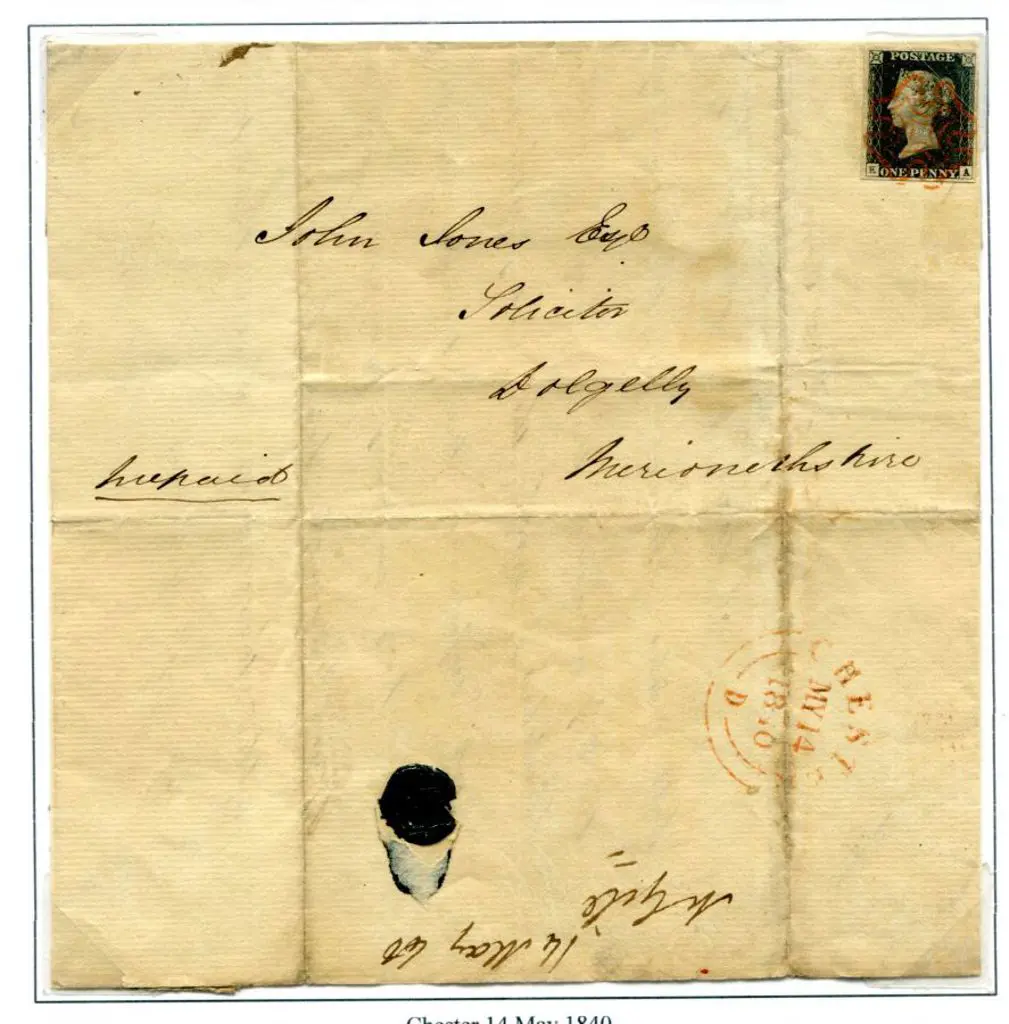 POSTAGE
ONE PENNY
K A
John Jones Esqr
Solicitor
Dolgelly
Merionethshire
prepaid
CHEST
MY 14
1840
D
14 May 40
Chester 14 May 1840